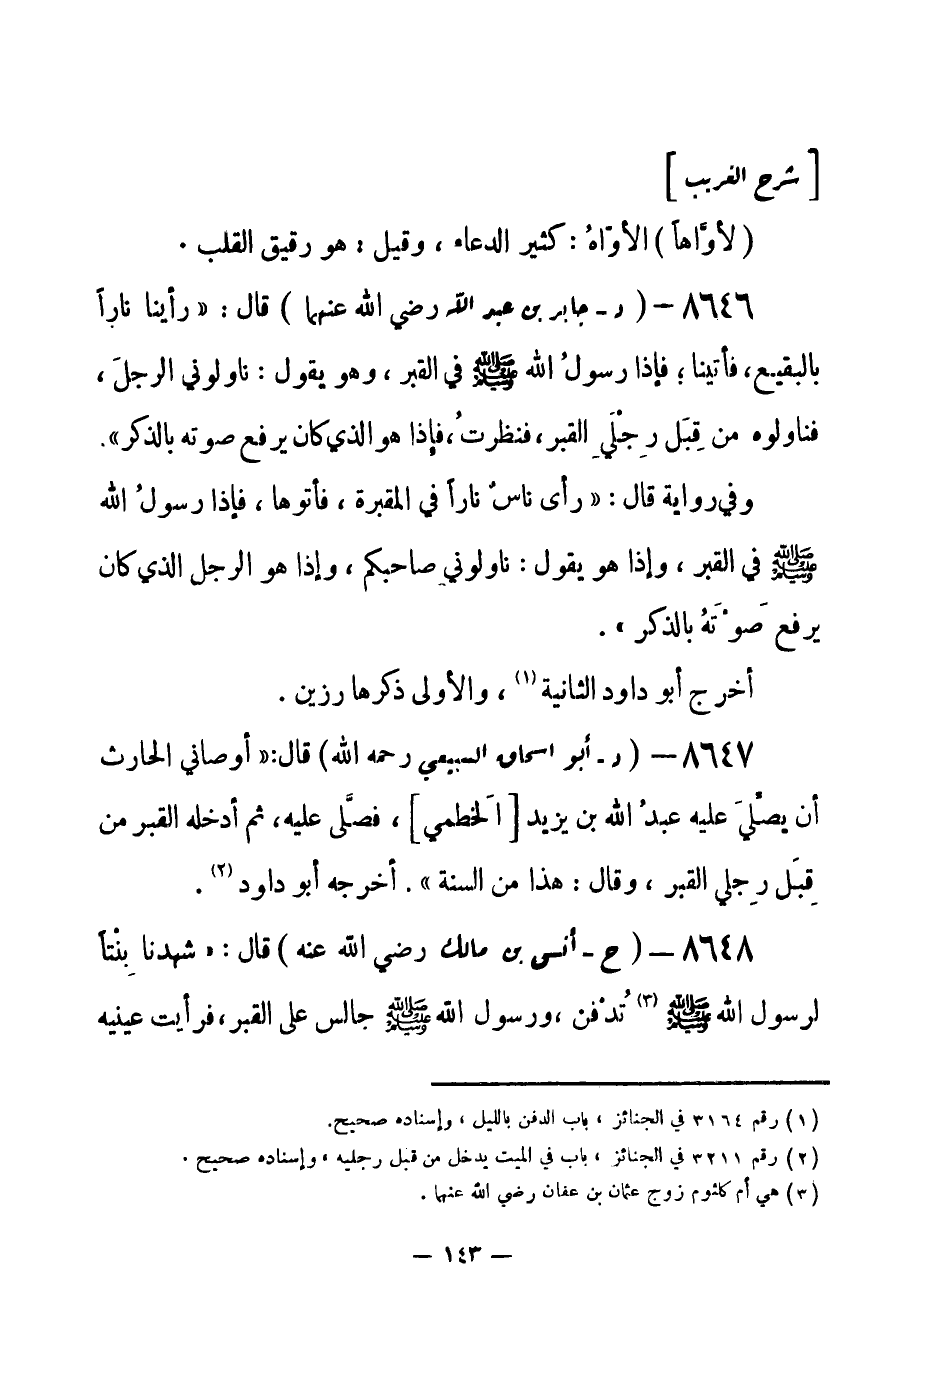 [ شرح الغريب ]
( لأوَّاهاً ) الأوّاهُ : كثير الدعاء ، وقيل : هو رقيق القلب .
٨٦٤٦ – ( د - جابر بن عبد الله رضي الله عنهما ) قال : « رأينا ناراً
بالبقيع، فأتينا ؛ فإذا رسولُ الله ﷺ في القبر ، وهو يقول : ناولوني الرجلَ ،
فناولوه من قِبَل رِجْلَيِ القبر، فنظرتُ، فإذا هو الذي كان يرفع صوته بالذكر ».
وفي رواية قال : « رأى ناسٌ ناراً في المقبرة ، فأتوها ، فإذا رسولُ الله
ﷺ في القبر ، وإذا هو يقول : ناولوني صاحبكم ، وإذا هو الرجل الذي كان
يرفع صَوْتَهُ بالذكر » .
أخرج أبو داود الثانية (١) ، والأولى ذكرها رزين .
٨٦٤٧ – ( د - أبو اسحاق السبيعي رحمه الله ) قال: « أوصاني الحارث
أن يصلِّيَ عليه عبدُ الله بن يزيد [ الَخطمي ] ، فصلَّى عليه، ثم أدخله القبر من
قِبَل رِجلي القبر ، وقال : هذا من السنة » . أخرجه أبو داود (٢) .
٨٦٤٨ – ( خ - أنس بن مالك رضي الله عنه ) قال : « شهدنا بِنْتاً
لرسول الله ﷺ (٣) تُدْفن ، ورسول الله ﷺ جالس على القبر ، فرأيت عينيه
(١) رقم ٣١٦٤ في الجنائز ، باب الدفن بالليل ، وإسناده صحيح.
(٢) رقم ٣٢١١ في الجنائز ، باب في الميت يدخل من قبل رجليه ، وإسناده صحيح .
(٣) هي أم كلثوم زوج عثمان بن عفان رضي الله عنهما .
– ١٤٣ –